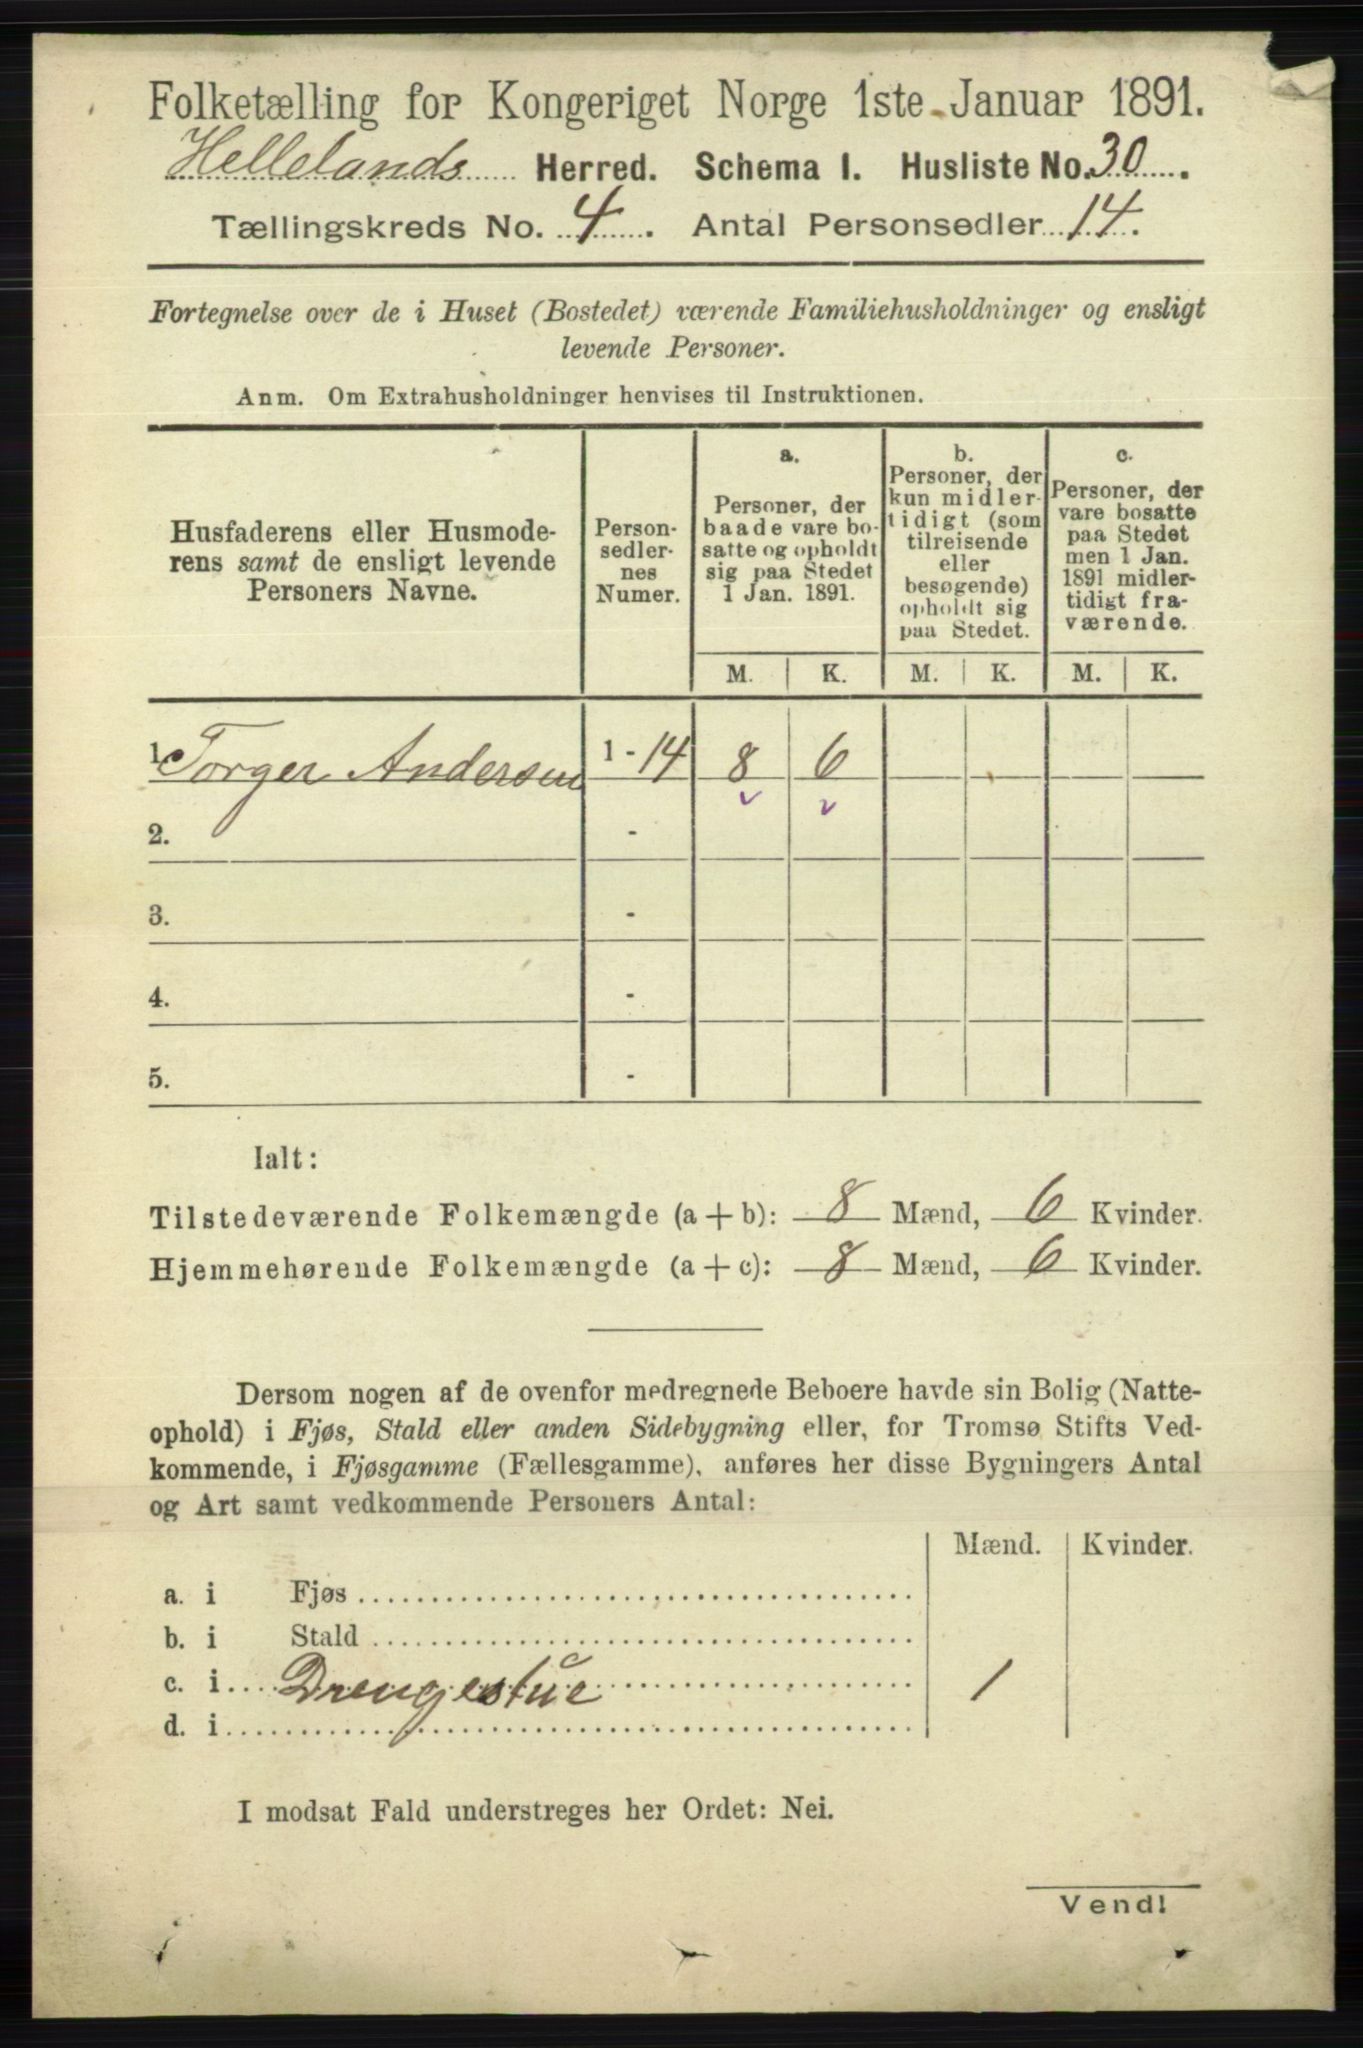 Folketælling for Kongeriget Norge 1ste Januar 1891.
Hellelands Herred. Schema I. Husliste No. 30.
Tællingskreds No. 4. Antal Personsedler 14.
Fortegnelse over de i Huset (Bostedet) værende Familiehusholdninger og ensligt
levende Personer.
Anm. Om Extrahusholdninger henvises til Instruktionen.
Husfaderens eller Husmode-
rens samt de ensligt levende
Personers Navne.
Person-
sedler-
nes
Numer.
a.
Personer, der
baade vare bo-
satte og opholdt
sig paa Stedet
1 Jan. 1891.
b.
Personer, der
kun midler-
tidigt (som
tilreisende
eller
besøgende)
opholdt sig
paa Stedet.
c.
Personer, der
vare bosatte
paa Stedet
men 1 Jan.
1891 midler-
tidigt fra-
værende.
M. K. M. K. M. K.
1. Torger Andersen 1 - 14 8 6
2. -
3. -
4. -
5. -
Ialt:
Tilstedeværende Folkemængde (a + b): 8 Mænd, 6 Kvinder.
Hjemmehørende Folkemængde (a + c): 8 Mænd, 6 Kvinder.
Dersom nogen af de ovenfor medregnede Beboere havde sin Bolig (Natte-
ophold) i Fjøs, Stald eller anden Sidebygning eller, for Tromsø Stifts Ved-
kommende, i Fjøsgamme (Fællesgamme), anføres her disse Bygningers Antal
og Art samt vedkommende Personers Antal:
Mænd. Kvinder.
a. i Fjøs
b. i Stald
c. i Drengestue 1
d. i
I modsat Fald understreges her Ordet: Nei.
Vend!